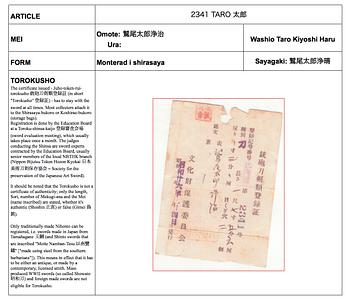 ARTICLE
2341 TARO 太郎
MEI
Omote: 鷲尾太郎浄治
Ura:
Washio Taro Kiyoshi Haru
FORM
Monterad i shirasaya
Sayagaki: 鷲尾太郎浄晴
TOROKUSHO
The certificate issued - Juho-token-rui-
torokusho 銃砲刀剣類登録証 (in short
"Torokusho" 登録証) - has to stay with the
sword at all times. Most collectors attach it
to the Shirasaya bukuro or Koshirae-bukuro
(storage bags).
Registration is done by the Education Board
at a Toroku-shinsa-kaijo 登録審査会場
(sword evaluation meeting), which usually
takes place once a month. The judges
conducting the Shinsa are sword experts
contracted by the Education Board, usually
senior members of the local NBTHK branch
(Nippon Bijutsu Token Hozon Kyokai 日本
美術刀剣保存協会 = Society for the
preservation of the Japanese Art Sword).
It should be noted that the Torokusho is not a
certificate of authenticity; only the length,
Sori, number of Mekugi-ana and the Mei
(name inscribed) are stated, whether it's
authentic (Shoshin 正真) or false (Gimei 偽
銘).
Only traditionally made Nihonto can be
registered, i.e. swords made in Japan from
Tamahagane 玉鋼 (and Shinto swords that are
inscribed "Motte Namban-Tetsu 以南蛮
鐵" ["made using steel from the southern
barbarians"]). This means in effect that it has
to be either an antique, or made by a
contemporary, licensed smith. Mass
produced WWII swords (so called Showato
昭和刀) and foreign made swords are not
eligible for Torokusho.
銃砲刀剣類登録証
文化財保護委員会